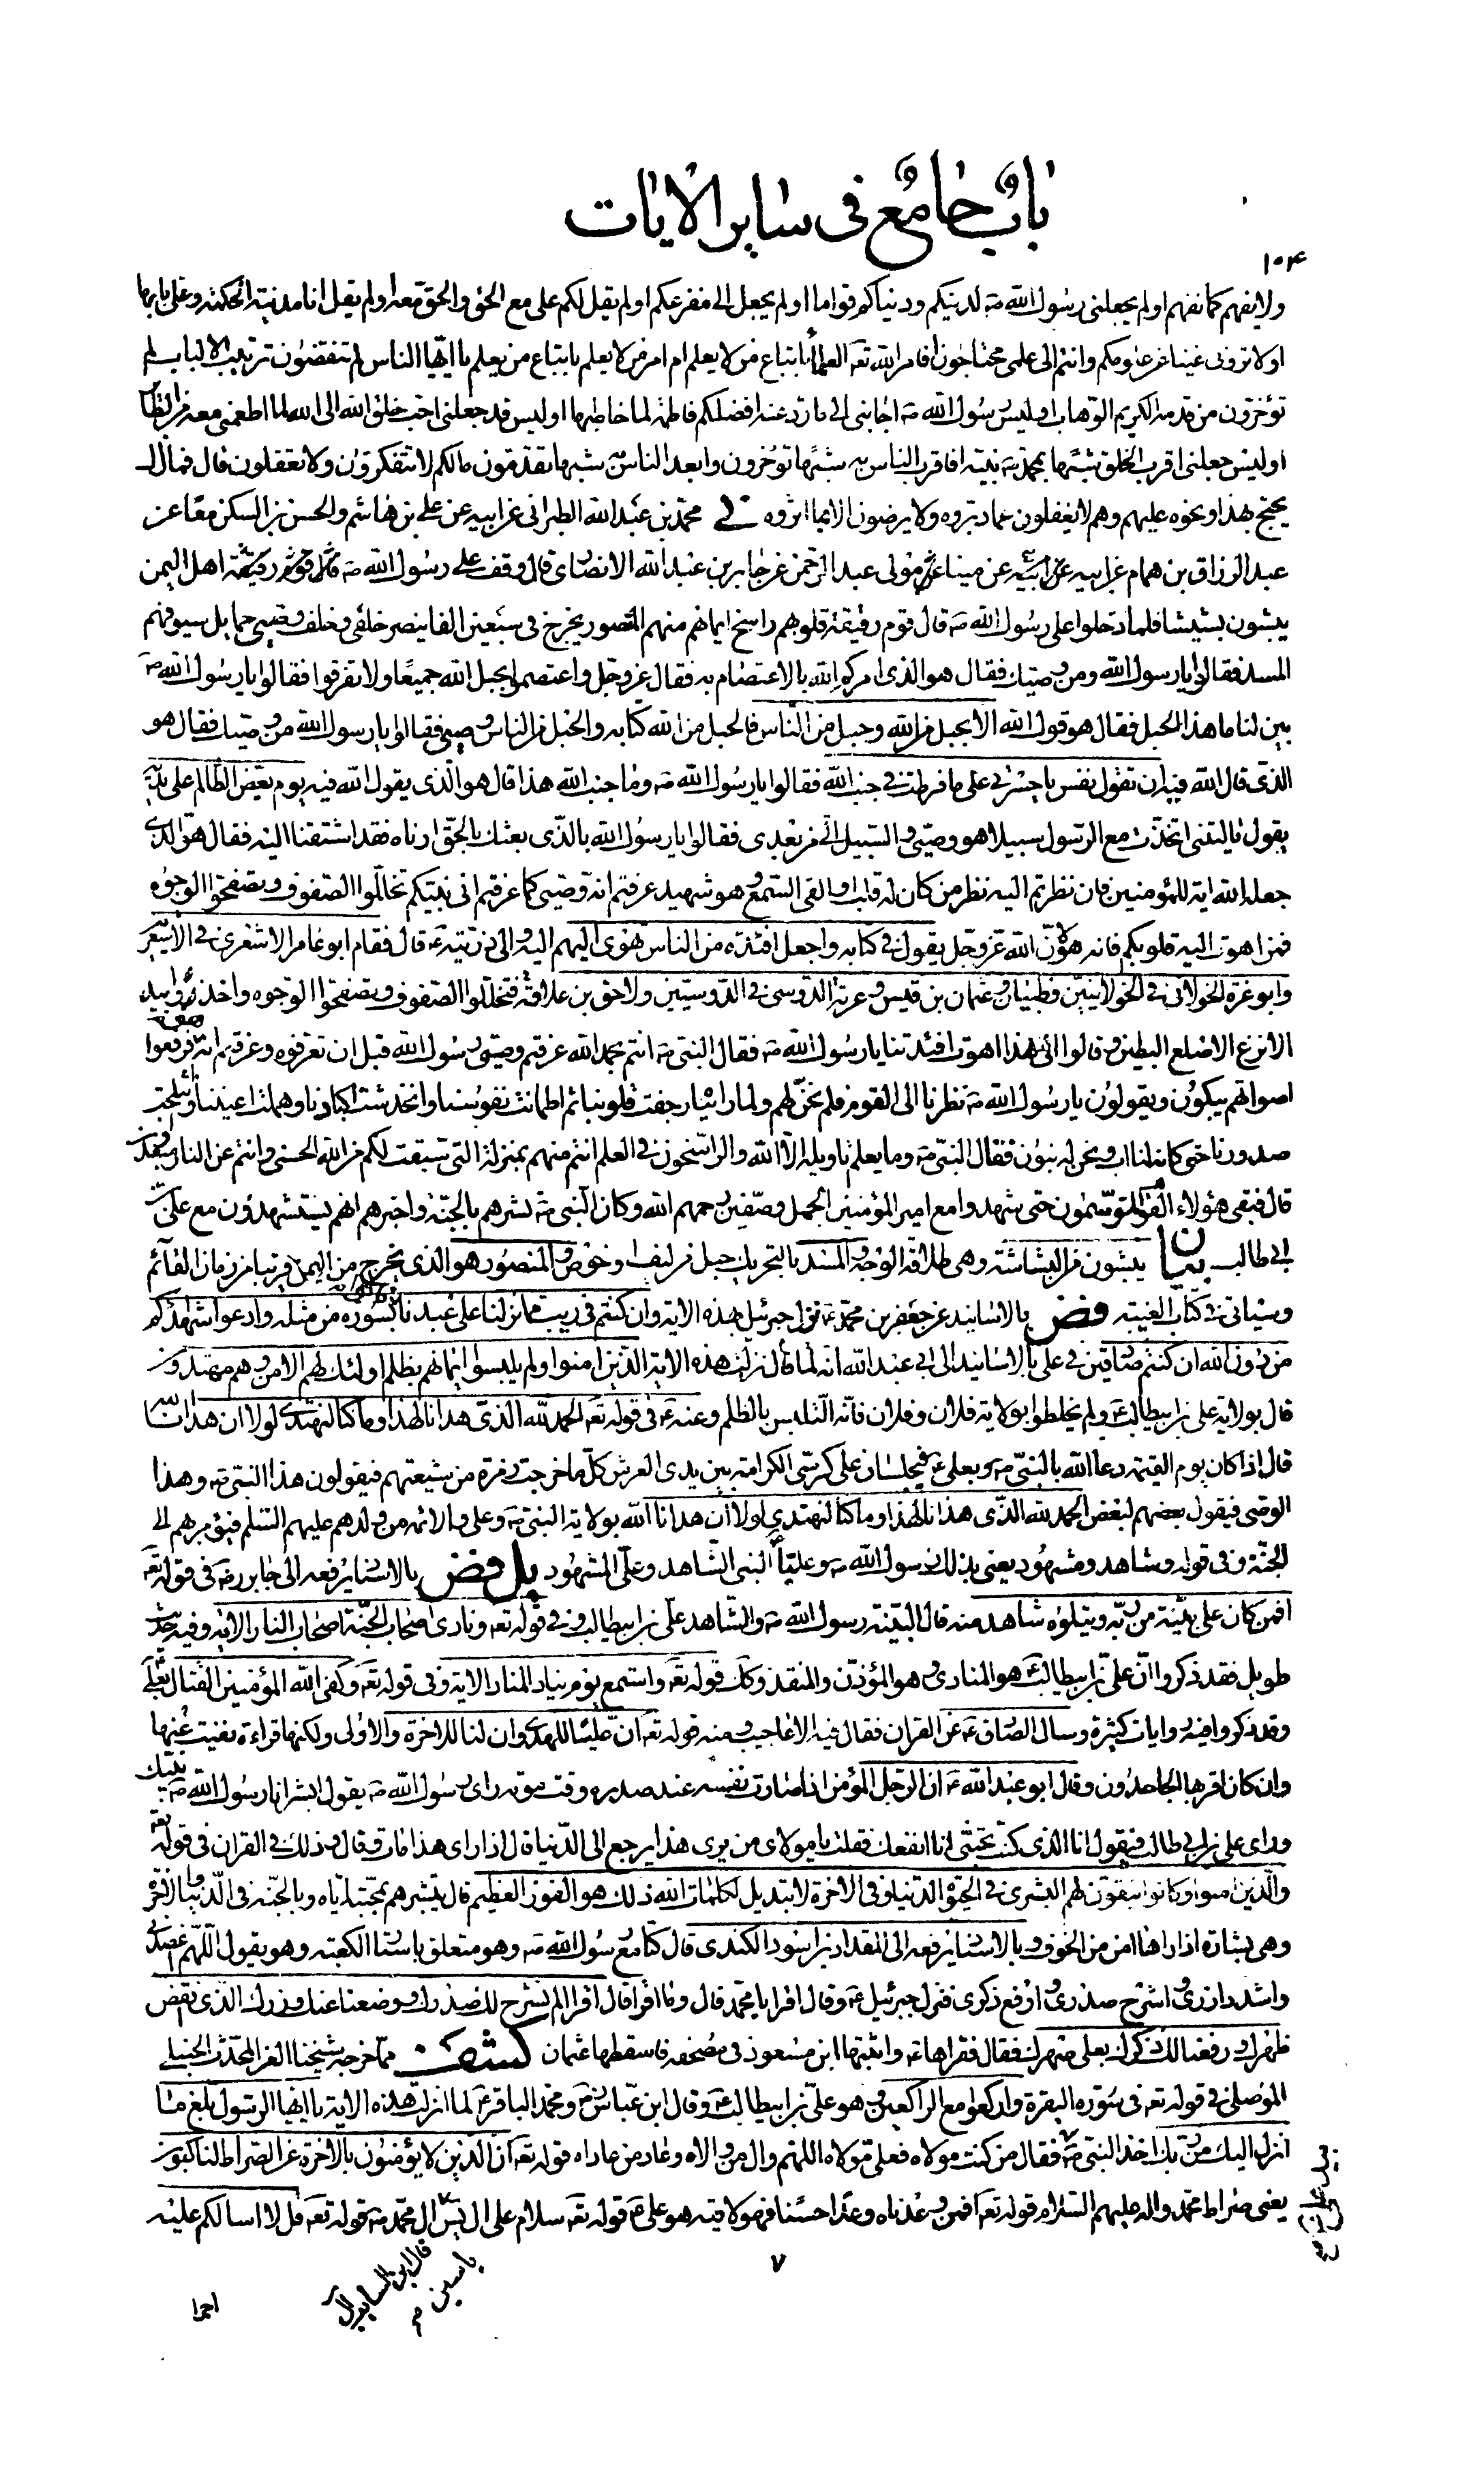 باب جامع في ساير الايات
١٠٤
ولا يفهم كما نفهم اولم يجعلني رسول الله ص لدينكم ودنياكم قواما اولم يجعل الي مفزعكم اولم يقل لكم علي مع الحق والحق معه اولم يقل انا مدينة الحكمة وعلي بابها
اولا تروني غنيا عن علومكم وانتم الى علمي محتاجون افامر الله تعه العلماء باتباع من لا يعلم ام امر من لا يعلم باتباع من يعلم يا ايها الناس لم تنقضون ترتيب الالباب لم
تؤخرون من قدمه الكريم الوهاب اوليس رسول الله ص اجابني الى ما رد عنه افضلكم فاطمة لما خاطبها اوليس قد جعلني احب خلق الله الى الله لما اطعمني معه من الطاير
اوليس جعلني اقرب الخلق شبها بمحمد ص نبيه افاقرب الناس به شبها تؤخرون وابعد الناس به شبها تقدمون ما لكم لا تتفكرون ولا تعقلون قال فما زال
يحتج بهذا ونحوه عليهم وهم لا يغفلون عما دبروه ولا يرضون الا بما اثروه ني محمد بن عبد الله الطبراني عن ابيه عن علي بن هاشم والحسن بن السكن معا عن
عبد الرزاق بن همام عن ابيه عن مينا مولى عبد الرحمن عن جابر بن عبد الله الانصاري قال وقف على رسول الله ص اهل اليمن
يبشون بشيشا فلما دخلوا على رسول الله ص قال قوم رقيقة قلوبهم راسخ ايمانهم منهم المنصور يخرج في سبعين الفا ينصر خلفي وخلف وصيي حمايل سيوفهم
المسد فقالوا يا رسول الله ومن وصيك فقال هو الذي امركم الله بالاعتصام به فقال عز وجل واعتصموا بحبل الله جميعا ولا تفرقوا فقالوا يا رسول الله ص
بين لنا ما هذا الحبل فقال هو قول الله الا بحبل من الله وحبل من الناس فالحبل من الله كتابه والحبل من الناس وصيي فقالوا يا رسول الله من وصيك فقال هو
الذي قال الله فيه ان تقول نفس يا حسرتي على ما فرطت في جنب الله فقالوا يا رسول الله ص وما جنب الله هذا قال هو الذي يقول الله فيه يوم يعض الظالم على يديه
يقول يا ليتني اتخذت مع الرسول سبيلا هو وصيي والسبيل الي من بعدي فقالوا يا رسول الله بالذي بعثك بالحق ارناه فقد اشتقنا اليه فقال هو الذي
جعله الله اية للمؤمنين فان نظرتم اليه نظر من كان له قلب او القى السمع وهو شهيد عرفتم انه وصيي كما عرفتم اني نبيكم تخللوا الصفوف وتصفحوا الوجوه
فمن اهوت اليه قلوبكم فانه هو لان الله عز وجل يقول في كتابه واجعل افئدة من الناس تهوي اليهم اليه والى ذريته ع قال فقام ابو عامر الاشعري في الاشعريين
وابو غرة الخولاني في الخولانيين وظبيان وعثمان بن قيس وعرية الدوسي في الدوسيين ولاحق بن علاقة فتخللوا الصفوف وتصفحوا الوجوه واخذوا بيد
الانزع الاصلع البطين وقالوا الى هذا اهوت افئدتنا يا رسول الله ص فقال النبي ص انتم بحمد الله عرفتم وصي رسول الله قبل ان تعرفوه وعرفتم انه هو فرفعوا
اصواتهم يبكون ويقولون يا رسول الله ص نظرنا الى القوم فلم نحن لهم ولما رايناه رجفت قلوبنا ثم اطمانت نفوسنا وانجذشت اكبادنا وهملت اعيننا وثلجت
صدورنا حتى كانه لنا اب ونحن له بنون فقال النبي ص وما يعلم تاويله الا الله والراسخون في العلم انتم منهم بمنزلة التي سبقت لكم من الله الحسنى وانتم عن النار مبعدون
قال فبقي هؤلاء القوم المتوسمون حتى شهدوا مع امير المؤمنين الجمل وصفين رحمهم الله وكان النبي ص بشرهم بالجنة واخبرهم انهم يستشهدون مع علي بن
ابي طالب بيان يبشون من البشاشة وهي طلاقة الوجه والمسد بالتحريك حبل من ليف او خوص والمنصور هو الذي يخرج من اليمن قريبا من زمان القائم
وسياتي في كتاب الغيبة فض بالاسانيد عن جعفر بن محمد ع نزل جبرئيل بهذه الاية وان كنتم في ريب مما نزلنا على عبدنا فاتوا بسورة من مثله وادعوا شهداءكم
من دون الله ان كنتم صادقين في علي بالاسانيد الى ابي عبد الله انه لما نزلت هذه الاية الذين امنوا ولم يلبسوا ايمانهم بظلم اولئك لهم الامن وهم مهتدون
قال بولاية علي بن ابيطالب ع ولم يخلطوا بولاية فلان وفلان فانه التلبس بالظلم وعنه ع في قوله تعه الحمد لله الذي هدانا لهذا وما كنا لنهتدي لولا ان هدانا الله
قال اذا كان يوم القيمة دعا الله بالنبي ص وبعلي ع فيجلسان على كرسي الكرامة بين يدي العرش كلما خرجت زمرة من شيعتهم فيقولون هذا النبي ص وهذا
الوصي فيقول بعضهم لبعض الحمد لله الذي هدانا لهذا وما كنا لنهتدي لولا ان هدانا الله بولاية النبي ص وعلي والائمة من ولدهم عليهم السلم فيؤمر بهم الى
الجنة وفي قوله وشاهد ومشهود يعني بذلك رسول الله ص وعليا ع النبي الشاهد وعلي المشهود يل فض بالاسناد يرفعه الى جابر رض في قوله تعه
افمن كان على بينة من ربه ويتلوه شاهد منه قال البينة رسول الله ص والشاهد علي بن ابيطالب وفي قوله تعه ونادى اصحاب الجنة اصحاب النار الاية وفيه حديث
طويل فقد ذكروا ان علي بن ابيطالب ع هو المنادي وهو المؤذن والمنقذ وكك قوله تعه واستمع يوم يناد المناد الاية وفي قوله تعه وكفى الله المؤمنين القتال بعلي
وقد ذكروا فيه روايات كثيرة وسال الصادق ع عن القران فقال فيه الاعاجيب ومنه قوله تعه ان عليا للهدى وان لنا للاخرة والاولى ولكنها قراءة نفيت عنها
وان كان اقر بها الجاحدون وقال ابو عبد الله ع ان الرجل المؤمن اذا صارت نفسه عند صدره وقت موته راى رسول الله ص يقول ابشر انا رسول الله ص نبيك
وراى علي بن ابي طالب فيقول انا الذي كنت تحبني انا انفعك فقلت يا مولاي من يرى هذا يرجع الى الدنيا قال اذا راى هذا مات قال وذلك في القران في قوله تعه
والذين امنوا وكانوا يتقون لهم البشرى في الحيوة الدنيا وفي الاخرة لا تبديل لكلمات الله ذلك هو الفوز العظيم قال يبشرهم بمحبته اياه وبالجنة في الدنيا والاخرة
وهي بشارة اذا راها امن من الخوف وبالاسناد يرفعه الى المقداد بن اسود الكندي قال كنا مع رسول الله ص وهو متعلق باستار الكعبة وهو يقول اللهم اعضدني
واشدد ازري واشرح صدري وارفع ذكري فنزل جبرئيل ع وقال اقرا يا محمد قال وما اقرا قال اقرا الم نشرح لك صدرك ووضعنا عنك وزرك الذي انقض
ظهرك ورفعنا لك ذكرك بعلي صهرك فقال فقراها ع واثبتها ابن مسعود في مصحفه فاسقطها عثمان كشف مما خرجه شيخنا العز المحدث الحنبلي
الموصلي في قوله تعه في سورة البقرة واركعوا مع الراكعين هو علي بن ابيطالب ع وقال ابن عباس رض ومحمد الباقر ع لما انزلت هذه الاية يا ايها الرسول بلغ ما
انزل اليك من ربك اخذ النبي ص فقال من كنت مولاه فعلي مولاه اللهم وال من والاه وعاد من عاداه قوله تعه ان الذين لا يؤمنون بالاخرة عن الصراط لناكبون
بيد علي ع صح
يعني صراط محمد واله عليهم السلام قوله تعه افمن وعدناه وعدا حسنا فهو لاقيه هو علي ع قوله تعه سلام على ال يس ال محمد ص قوله تعه قل لا اسالكم عليه
قال ابن السايب ال ياسين
٧
اجرا